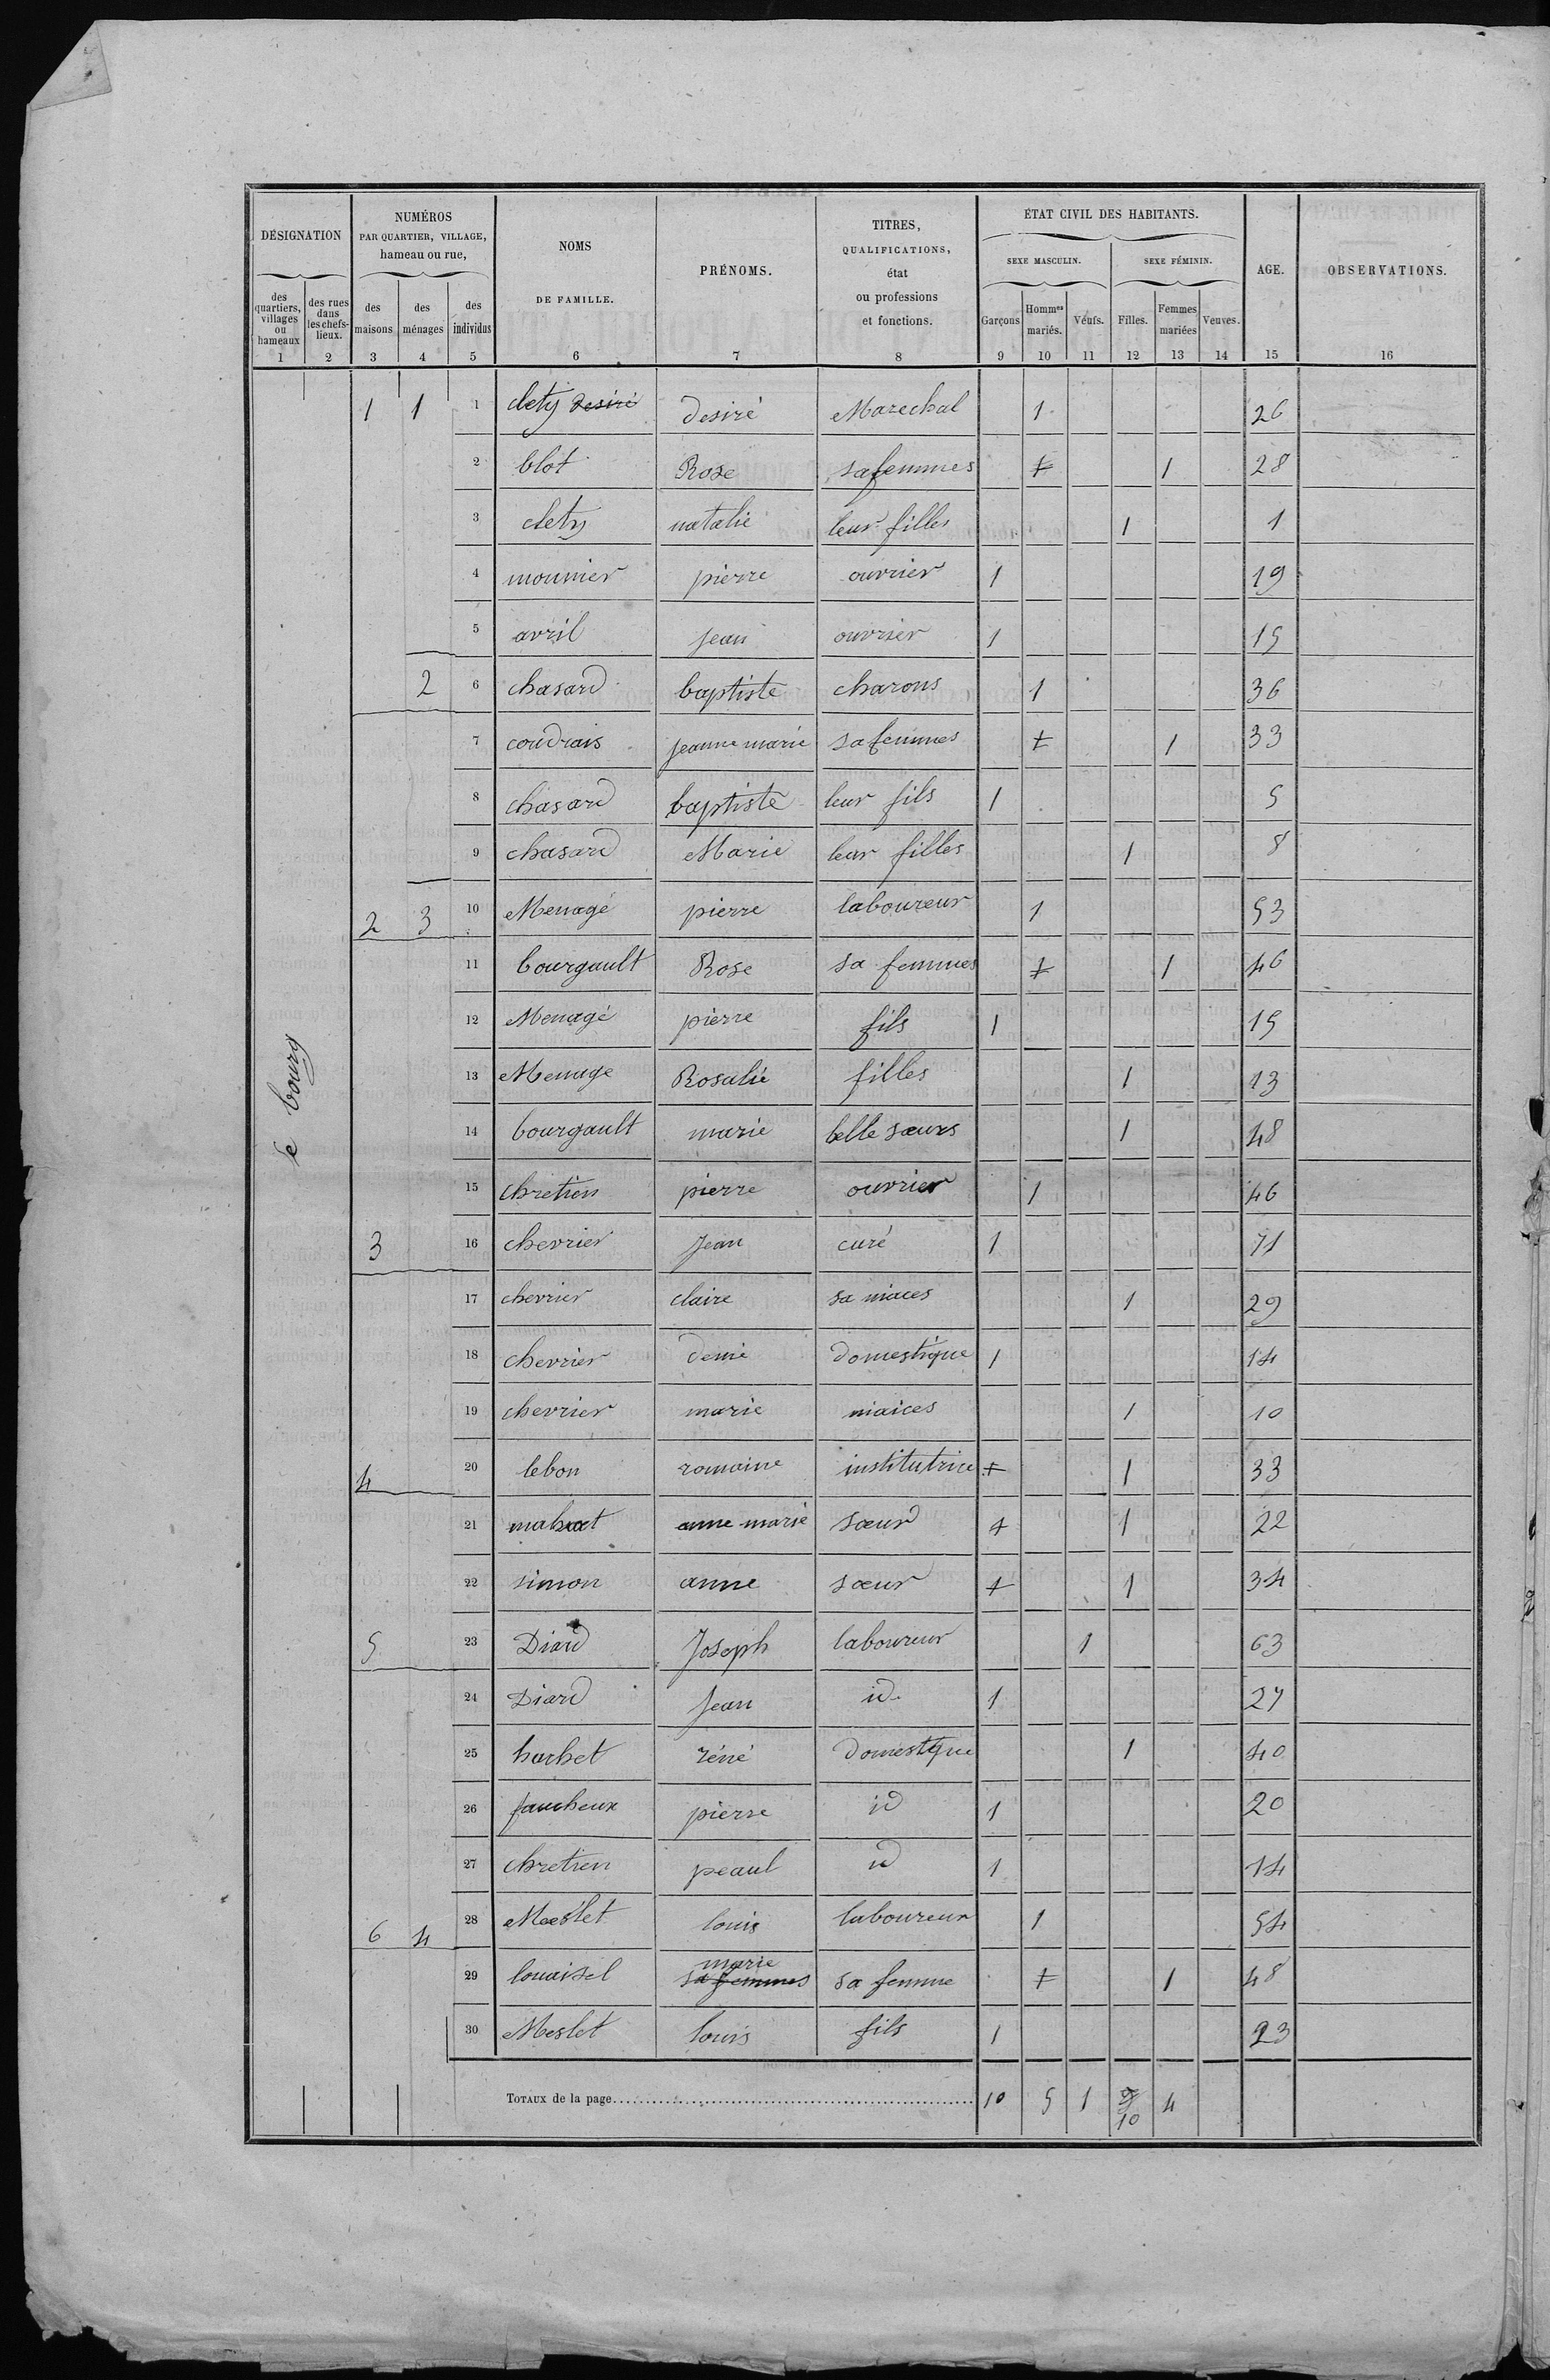 DÉSIGNATION
NUMÉROS
PAR QUARTIER, VILLAGE,
hameau ou rue,
NOMS
DE FAMILLE.
PRÉNOMS.
TITRES,
QUALIFICATIONS,
état
ou professions
et fonctions.
ÉTAT CIVIL DES HABITANTS.
SEXE MASCULIN. SEXE FÉMININ.
AGE.
OBSERVATIONS.
des quartiers, villages ou hameaux
des rues dans les chefs-lieux.
des maisons
des ménages
des individus
Garçons Hommes mariés. Veufs. Filles. Femmes mariées Veuves.
1 2 3 4 5 6 7 8 9 10 11 12 13 14 15 16
le bourg
1 1 1 clety desiré desiré Marechal 1 26
2 blot Rose sa femmes 1 1 28
3 clety natalie leur filles 1 1
4 mounier pierre ouvrier 1 19
5 avril jean ouvrier 1 15
2 6 chasard baptiste charons 1 36
7 coudrais jeanne marie sa femmes 1 1 33
8 chasard baptiste leur fils 1 5
9 chasard Marie leur filles 1 8
2 3 10 Menagé pierre laboureur 1 53
11 bourgault Rose sa femmes 1 1 46
12 Menagé pierre fils 1 15
13 Menage Rosalie filles 1 13
14 bourgault marie belle sœurs 1 48
15 chretien pierre ouvrier 1 46
3 16 chevrier Jean curé 1 71
17 chevrier claire sa niaces 1 29
18 chevrier denie domestique 1 14
19 chevrier marie niaices 1 10
4 20 lebon romaine institutrice 1 1 33
21 anne marie sœur 1 1 22
22 simon anne sœur 1 1 34
5 23 Diard Joseph laboureur 1 63
24 Diard Jean id. 1 27
25 harhet réné domestique 1 40
26 faucheux pierre id 1 20
27 chretien peaul id 1 14
6 4 28 Meslet louis laboureur 1 54
29 louaisel sa femmes marie sa femme 1 1 48
30 Meslet louis fils 1 23
TOTAUX de la page 10 5 1 9 10 4